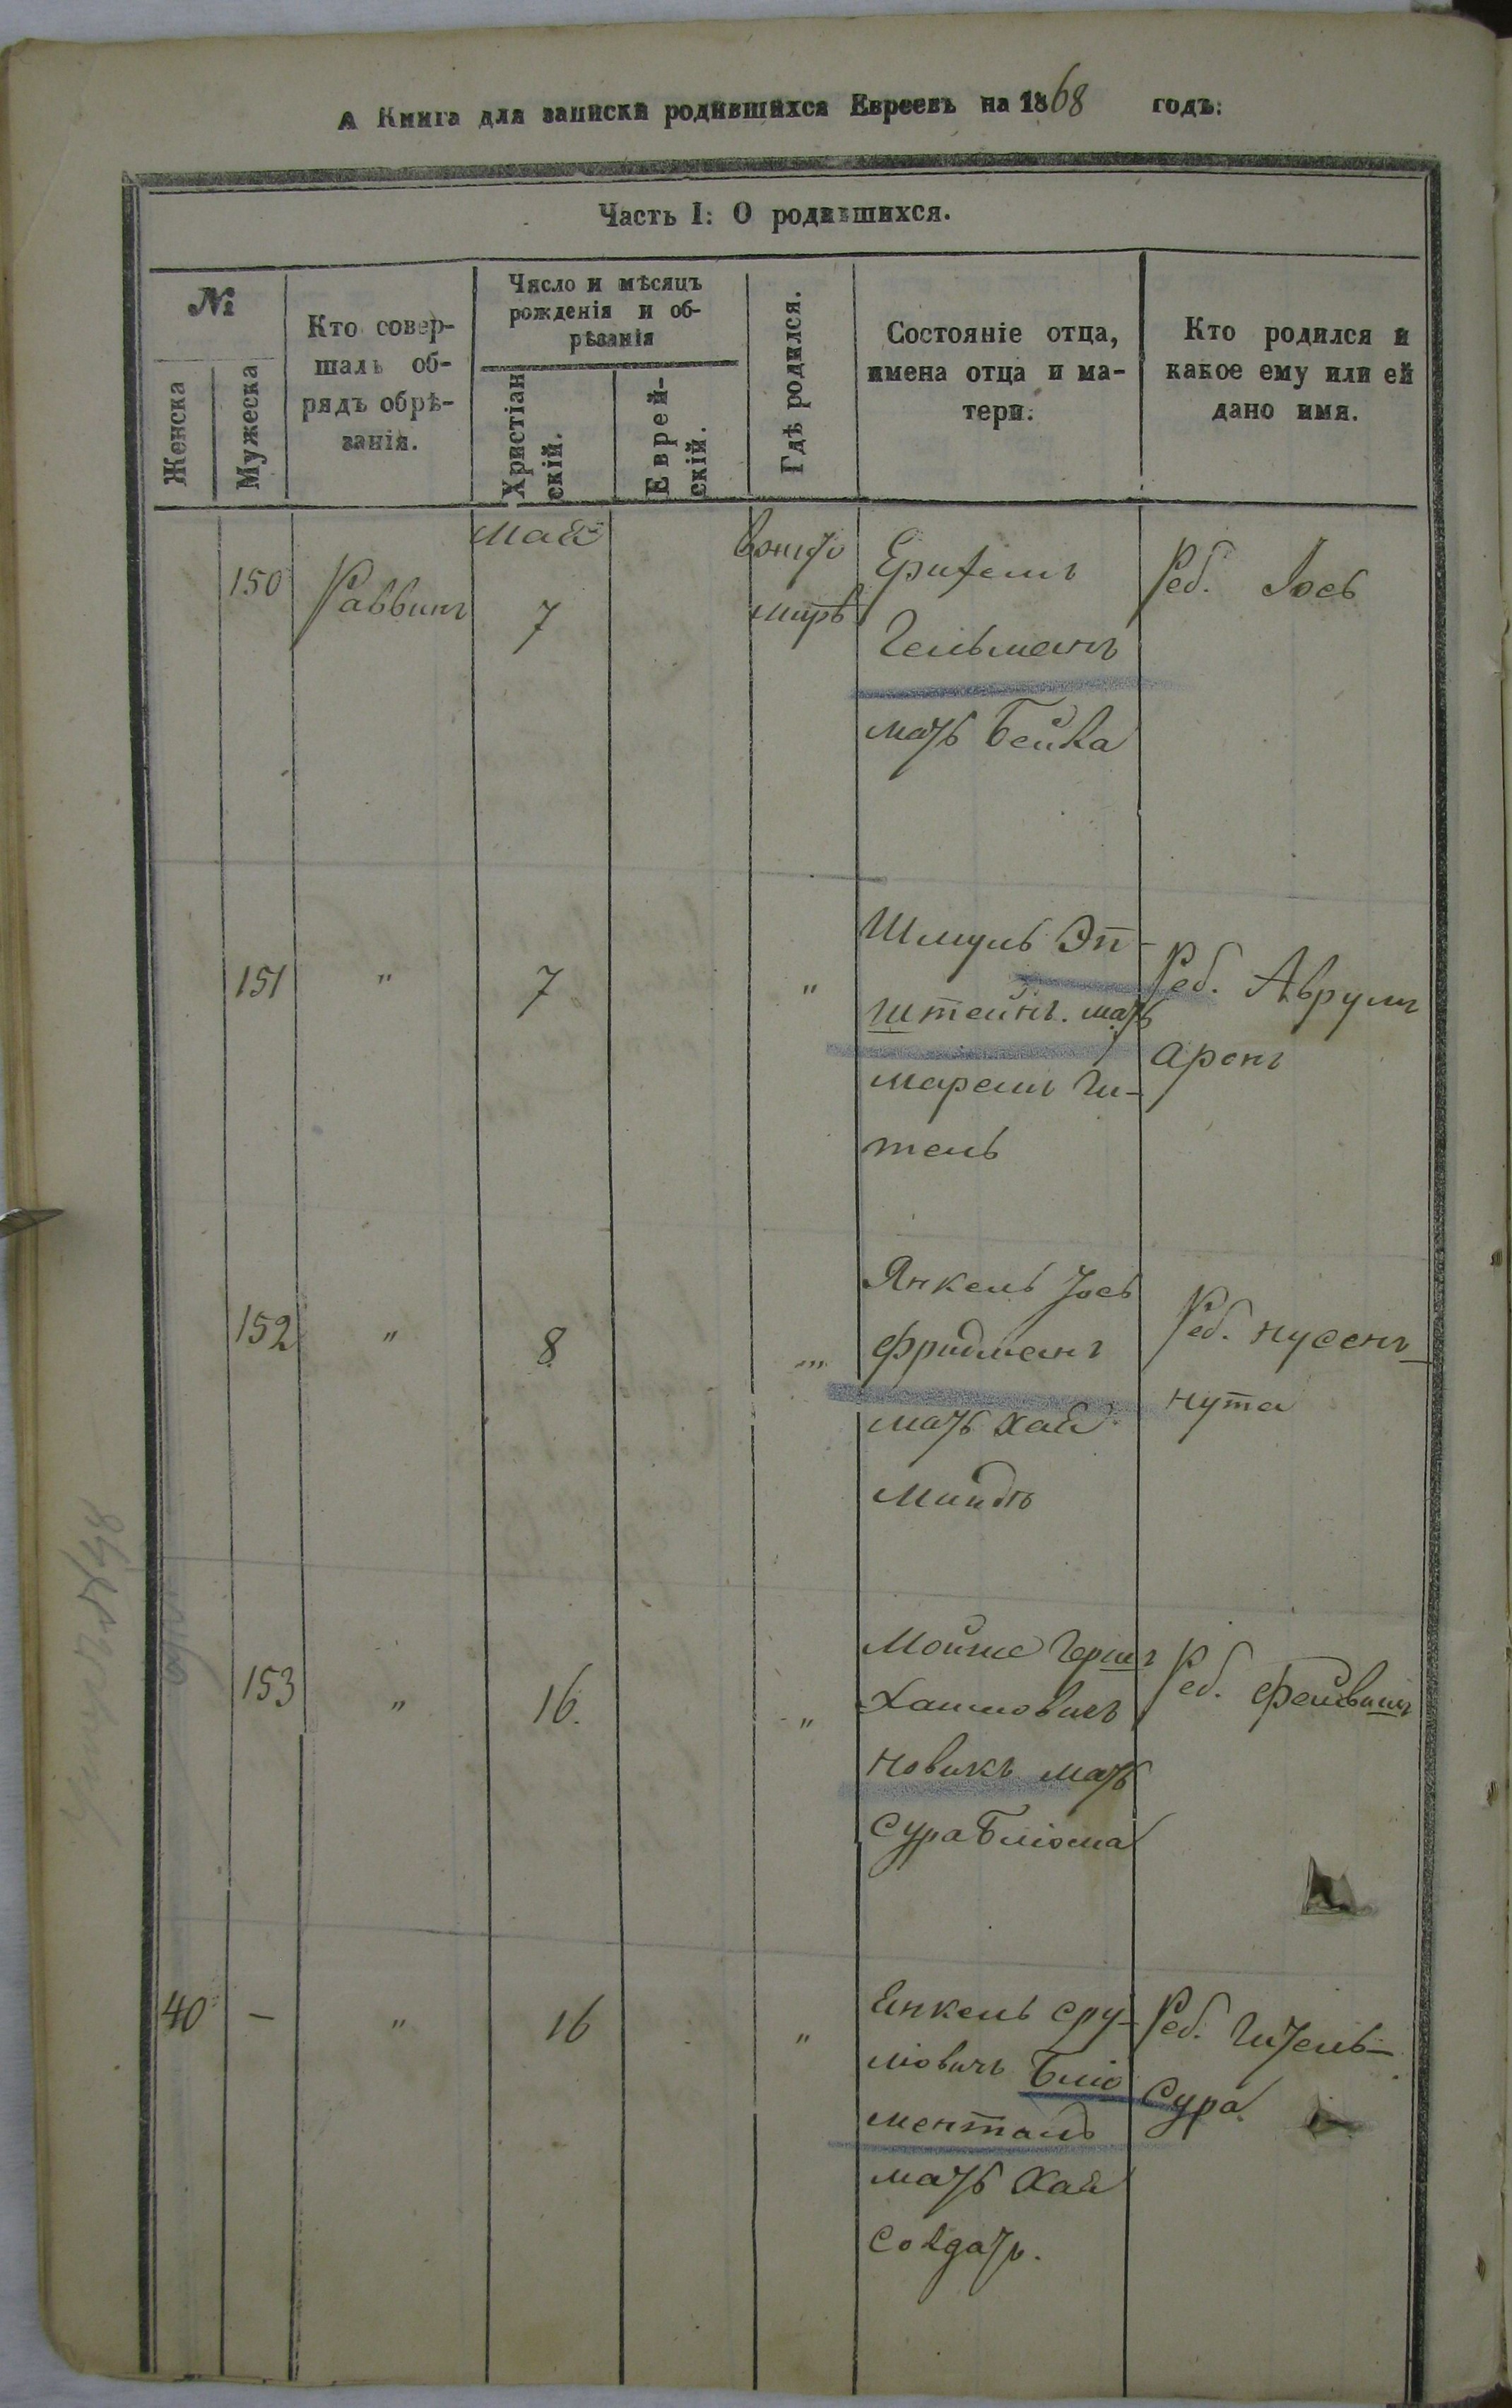 А Книга для записки родившихся Евреевъ на 1868 годъ:
Часть I: О родившихся.
№
Женска
Мужеска
Кто совер-
шалъ об-
рядъ обрѣ-
занія.
Число и мѣсяцъ
рожденія и об-
рѣзанія
Христіан
скій.
Еврей-
скій.
Гдѣ родился.
Состояніе отца,
имена отца и ма-
тери.
Кто родился и
какое ему или ей
дано имя.
150
Раввинъ
Май
7
вжито
мирѣ
Гельманъ
мать Бейла
Реб. Іось
151
"
7
"
Шмуль Эп-
штейнъ. мать
Марьям Ги-
тель
Реб. Аврумъ
Аронъ
152
"
8
"
Янкель Іось
Фридманъ
мать Хая
Миндя
Реб. Нусенъ-
Нута
153
"
16.
"
Мойше Гершъ
Хаимовичъ
Новикъ мать
Сура Блюма
Реб. Фейвишъ
40
—
"
16
"
Янкель Сру-
люовичъ Блю
менталь
мать Хая
Солдат.
Реб. Гитель-
Сура